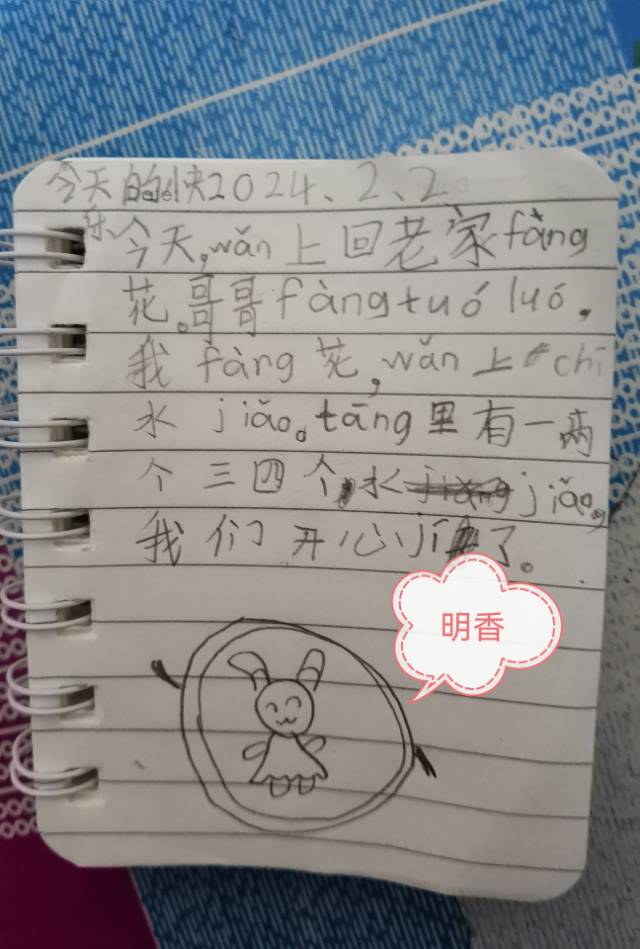 今天的快2024、2、2
乐
今天,wǎn上回老家fàng
花。哥哥fàngtuó luó,
我fàng花,wǎn上chī
水jiǎo。tāng里有一两
个三四个,水jiǎo,
我们开心jí了。
明香